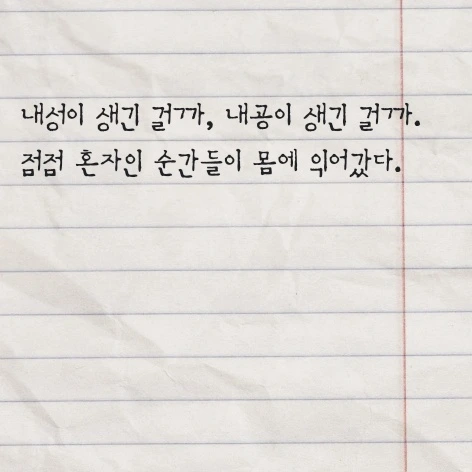 내성이 생긴 걸까, 내공이 생긴 걸까.
점점 혼자인 순간들이 몸에 익어갔다.